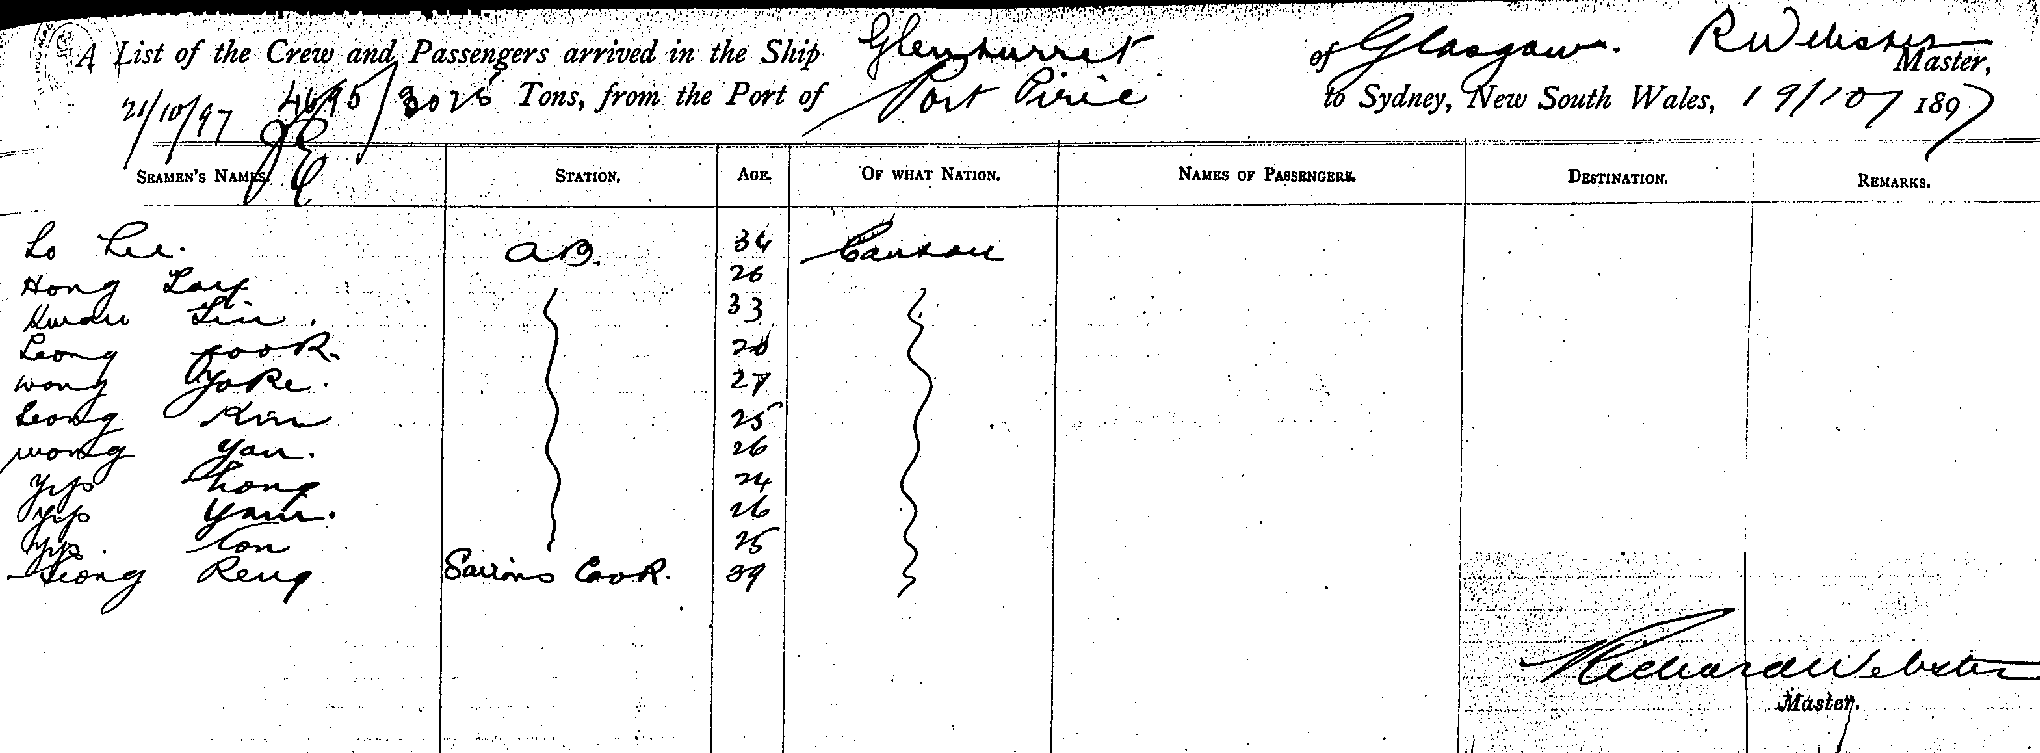 A List of the Crew and Passengers arrived in the Ship Glenturret of Glasgow. R Webster Master,
21/10/97 4695/3025 Tons, from the Port of Port Pirie to Sydney, New South Wales, 19/10/1897
SEAMEN'S NAMES. STATION. AGE. OF WHAT NATION. NAMES OF PASSENGERS. DESTINATION. REMARKS.
Lo Lee. A.B. 34 Canton
Hong 26
Kwan Lin. 33
Leong Fook. 20
Wong Yoke. 27
Leong Kim 25
Wong Yan. 26
Yip Chong 24
Yip Yam. 26
Yip. Con 25
Leong Keng Cook. 39
Richard Webster
Master.